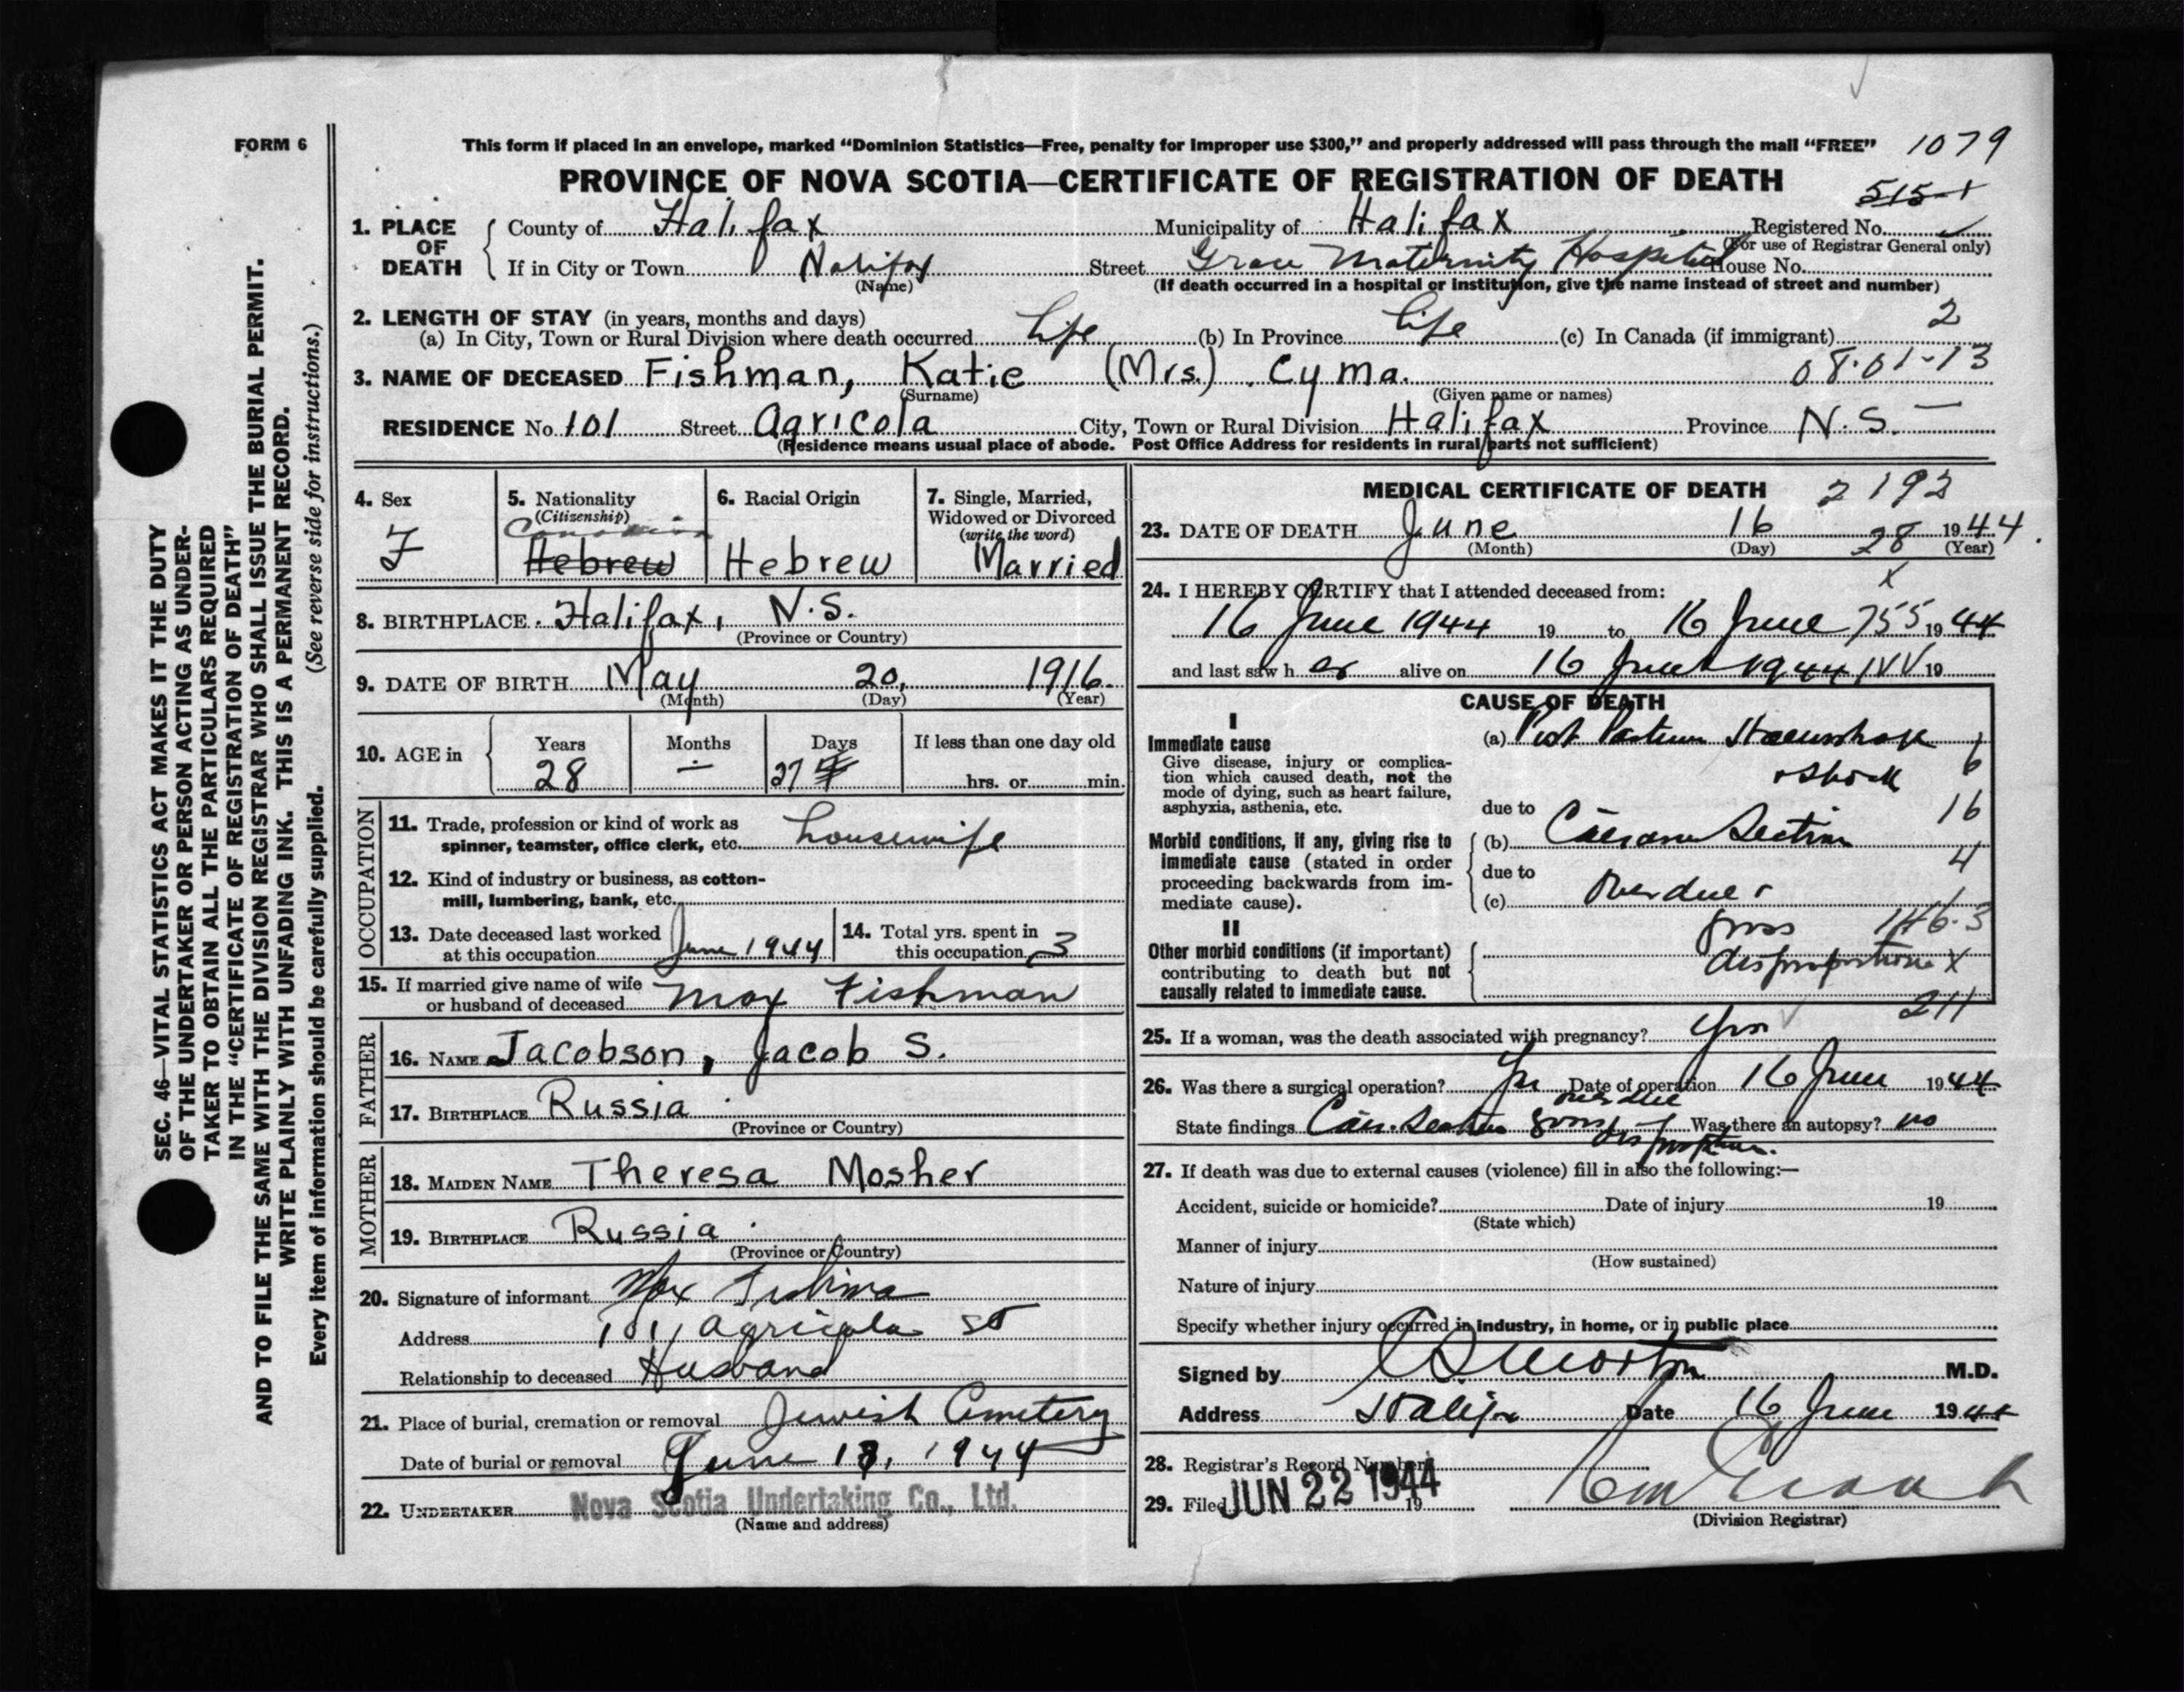 FORM 6
This form if placed in an envelope, marked “Dominion Statistics—Free, penalty for improper use $300,” and properly addressed will pass through the mail “FREE” 1079
PROVINCE OF NOVA SCOTIA—CERTIFICATE OF REGISTRATION OF DEATH
515
1. PLACE OF DEATH
County of Halifax Municipality of Halifax Registered No.
(For use of Registrar General only)
If in City or Town Halifax Street Grace Maternity Hospital House No.
(Name) (If death occurred in a hospital or institution, give the name instead of street and number)
2. LENGTH OF STAY (in years, months and days) 2
(a) In City, Town or Rural Division where death occurred Life (b) In Province Life (c) In Canada (if immigrant)
3. NAME OF DECEASED Fishman, Katie (Mrs.) Cyma. 08.01-13
(Surname) (Given name or names)
RESIDENCE No. 101 Street Agricola City, Town or Rural Division Halifax Province N.S.
(Residence means usual place of abode. Post Office Address for residents in rural parts not sufficient)
4. Sex
F
5. Nationality
(Citizenship)
Canadian
Hebrew
6. Racial Origin
Hebrew
7. Single, Married,
Widowed or Divorced
(write the word)
Married
8. BIRTHPLACE Halifax, N.S.
(Province or Country)
9. DATE OF BIRTH May 20, 1916
(Month) (Day) (Year)
10. AGE in
Years Months Days If less than one day old
28 — 27 hrs. or min.
OCCUPATION
11. Trade, profession or kind of work as
spinner, teamster, office clerk, etc. housewife
12. Kind of industry or business, as cotton-
mill, lumbering, bank, etc.
13. Date deceased last worked
at this occupation June 1944
14. Total yrs. spent in
this occupation 3
15. If married give name of wife
or husband of deceased Max Fishman
FATHER
16. NAME Jacobson, Jacob S.
17. BIRTHPLACE Russia
(Province or Country)
MOTHER
18. MAIDEN NAME Theresa Mosher
19. BIRTHPLACE Russia
(Province or Country)
20. Signature of informant Max Fishman
Address 101 Agricola St
Relationship to deceased Husband
21. Place of burial, cremation or removal Jewish Cemetery
Date of burial or removal June 18, 1944
22. UNDERTAKER Nova Scotia Undertaking Co., Ltd.
(Name and address)
MEDICAL CERTIFICATE OF DEATH 2192
23. DATE OF DEATH June 16 28 1944
(Month) (Day) (Year)
24. I HEREBY CERTIFY that I attended deceased from:
16 June 1944 19 to 16 June 755 1944
and last saw her alive on 16 June 1944 19
CAUSE OF DEATH
I
Immediate cause
Give disease, injury or complica-
tion which caused death, not the
mode of dying, such as heart failure,
asphyxia, asthenia, etc.
(a) Post Partum Haemorrhage
+ Shock 6
due to 16
Morbid conditions, if any, giving rise to
immediate cause (stated in order
proceeding backwards from im-
mediate cause).
(b) Caesarean Section
due to 4
(c) Overdue +
gross 146.3
disproportion X
II
Other morbid conditions (if important)
contributing to death but not
causally related to immediate cause.
211
25. If a woman, was the death associated with pregnancy? Yes
26. Was there a surgical operation? Yes Date of operation 16 June 1944
State findings Caes. Section overdue gross disproportion. Was there an autopsy? no
27. If death was due to external causes (violence) fill in also the following:—
Accident, suicide or homicide? Date of injury 19
(State which)
Manner of injury
(How sustained)
Nature of injury
Specify whether injury occurred in industry, in home, or in public place
Signed by Morton M.D.
Address Halifax Date 16 June 1944
28. Registrar's Record Number
29. Filed JUN 22 1944 19
(Division Registrar)
SEC. 46—VITAL STATISTICS ACT MAKES IT THE DUTY
OF THE UNDERTAKER OR PERSON ACTING AS UNDER-
TAKER TO OBTAIN ALL THE PARTICULARS REQUIRED
IN THE “CERTIFICATE OF REGISTRATION OF DEATH”
AND TO FILE THE SAME WITH THE DIVISION REGISTRAR WHO SHALL ISSUE THE BURIAL PERMIT.
WRITE PLAINLY WITH UNFADING INK. THIS IS A PERMANENT RECORD.
Every item of information should be carefully supplied. (See reverse side for instructions.)